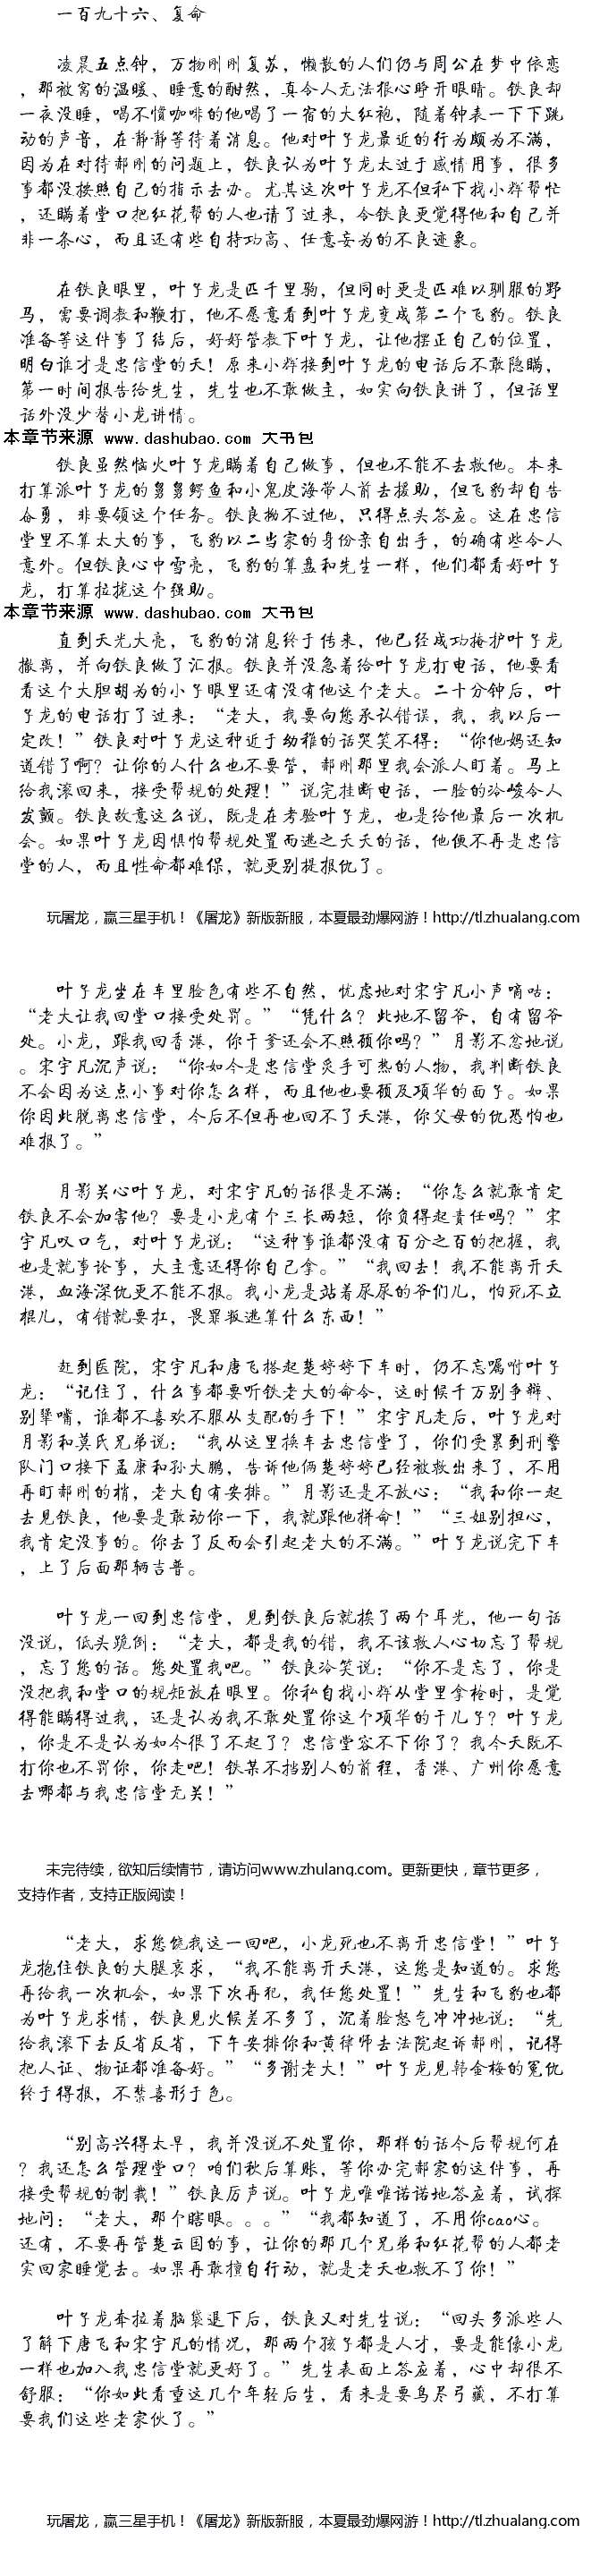 一百九十六、复命
凌晨五点钟，万物刚刚复苏，懒散的人们仍与周公在梦中依恋
，那被窝的温暖、睡意的酣然，真令人无法狠心睁开眼睛。铁良却
一夜没睡，喝不惯咖啡的他喝了一宿的大红袍，随着钟表一下下跳
动的声音，在静静等待着消息。他对叶子龙最近的行为颇为不满，
因为在对待郝刚的问题上，铁良认为叶子龙太过于感情用事，很多
事都没按照自己的指示去办。尤其这次叶子龙不但私下找小辉帮忙
，还瞒着堂口把红花帮的人也请了过来，令铁良更觉得他和自己并
非一条心，而且还有些自持功高、任意妄为的不良迹象。
在铁良眼里，叶子龙是匹千里驹，但同时更是匹难以驯服的野
马，需要调教和鞭打，他不愿意看到叶子龙变成第二个飞豹。铁良
准备等这件事了结后，好好管教下叶子龙，让他摆正自己的位置，
明白谁才是忠信堂的天！原来小辉接到叶子龙的电话后不敢隐瞒，
第一时间报告给先生，先生也不敢做主，如实向铁良讲了，但话里
话外没少替小龙讲情。
本章节来源 www.dashubao.com 大书包
铁良虽然恼火叶子龙瞒着自己做事，但也不能不去救他。本来
打算派叶子龙的舅舅鳄鱼和小鬼皮海带人前去援助，但飞豹却自告
奋勇，非要领这个任务。铁良拗不过他，只得点头答应。这在忠信
堂里不算太大的事，飞豹以二当家的身份亲自出手，的确有些令人
意外。但铁良心中雪亮，飞豹的算盘和先生一样，他们都看好叶子
龙，打算拉拢这个强助。
本章节来源 www.dashubao.com 大书包
直到天光大亮，飞豹的消息终于传来，他已经成功掩护叶子龙
撤离，并向铁良做了汇报。铁良并没急着给叶子龙打电话，他要看
看这个大胆胡为的小子眼里还有没有他这个老大。二十分钟后，叶
子龙的电话打了过来：“老大，我要向您承认错误，我，我以后一
定改！”铁良对叶子龙这种近于幼稚的话哭笑不得：“你他妈还知
道错了啊？让你的人什么也不要管，郝刚那里我会派人盯着。马上
给我滚回来，接受帮规的处理！”说完挂断电话，一脸的冷峻令人
发颤。铁良故意这么说，既是在考验叶子龙，也是给他最后一次机
会。如果叶子龙因惧怕帮规处置而逃之夭夭的话，他便不再是忠信
堂的人，而且性命都难保，就更别提报仇了。
玩屠龙，赢三星手机！《屠龙》新版新服，本夏最劲爆网游！http://tl.zhualang.com
叶子龙坐在车里脸色有些不自然，忧虑地对宋宇凡小声嘀咕：
“老大让我回堂口接受处罚。”“凭什么？此地不留爷，自有留爷
处。小龙，跟我回香港，你干爹还会不照顾你吗？”月影不忿地说
。宋宇凡沉声说：“你如今是忠信堂炙手可热的人物，我判断铁良
不会因为这点小事对你怎么样，而且他也要顾及项华的面子。如果
你因此脱离忠信堂，今后不但再也回不了天港，你父母的仇恐怕也
难报了。”
月影关心叶子龙，对宋宇凡的话很是不满：“你怎么就敢肯定
铁良不会加害他？要是小龙有个三长两短，你负得起责任吗？”宋
宇凡叹口气，对叶子龙说：“这种事谁都没有百分之百的把握，我
也是就事论事，大主意还得你自己拿。”“我回去！我不能离开天
港，血海深仇更不能不报。我小龙是站着尿尿的爷们儿，怕死不立
棍儿，有错就要扛，畏罪叛逃算什么东西！”
赶到医院，宋宇凡和唐飞搭起楚婷婷下车时，仍不忘嘱咐叶子
龙：“记住了，什么事都要听铁老大的命令，这时候千万别争辩、
别犟嘴，谁都不喜欢不服从支配的手下！”宋宇凡走后，叶子龙对
月影和莫氏兄弟说：“我从这里换车去忠信堂了，你们受累到刑警
队门口接下孟康和孙大鹏，告诉他俩楚婷婷已经被救出来了，不用
再盯郝刚的梢，老大自有安排。”月影还是不放心：“我和你一起
去见铁良，他要是敢动你一下，我就跟他拼命！”“三姐别担心，
我肯定没事的。你去了反而会引起老大的不满。”叶子龙说完下车
，上了后面那辆吉普。
叶子龙一回到忠信堂，见到铁良后就挨了两个耳光，他一句话
没说，低头跪倒：“老大，都是我的错，我不该救人心切忘了帮规
，忘了您的话。您处置我吧。”铁良冷笑说：“你不是忘了，你是
没把我和堂口的规矩放在眼里。你私自找小辉从堂里拿枪时，是觉
得能瞒得过我，还是认为我不敢处置你这个项华的干儿子？叶子龙
，你是不是认为如今很了不起了？忠信堂容不下你了？我今天既不
打你也不罚你，你走吧！铁某不挡别人的前程，香港、广州你愿意
去哪都与我忠信堂无关！”
未完待续，欲知后续情节，请访问www.zhulang.com。更新更快，章节更多，
支持作者，支持正版阅读！
“老大，求您饶我这一回吧，小龙死也不离开忠信堂！”叶子
龙抱住铁良的大腿哀求，“我不能离开天港，这您是知道的。求您
再给我一次机会，如果下次再犯，我任您处置！”先生和飞豹也都
为叶子龙求情，铁良见火候差不多了，沉着脸怒气冲冲地说：“先
给我滚下去反省反省，下午安排你和黄律师去法院起诉郝刚，记得
把人证、物证都准备好。”“多谢老大！”叶子龙见韩金梅的冤仇
终于得报，不禁喜形于色。
“别高兴得太早，我并没说不处置你，那样的话今后帮规何在
？我还怎么管理堂口？咱们秋后算账，等你办完郝家的这件事，再
接受帮规的制裁！”铁良厉声说。叶子龙唯唯诺诺地答应着，试探
地问：“老大，那个瞎眼。。。”“我都知道了，不用你cao心。
还有，不要再管楚云国的事，让你的那几个兄弟和红花帮的人都老
实回家睡觉去。如果再敢擅自行动，就是老天也救不了你！”
叶子龙耷拉着脑袋退下后，铁良又对先生说：“回头多派些人
了解下唐飞和宋宇凡的情况，那两个孩子都是人才，要是能像小龙
一样也加入我忠信堂就更好了。”先生表面上答应着，心中却很不
舒服：“你如此看重这几个年轻后生，看来是要鸟尽弓藏，不打算
要我们这些老家伙了。”
玩屠龙，赢三星手机！《屠龙》新版新服，本夏最劲爆网游！http://tl.zhualang.com